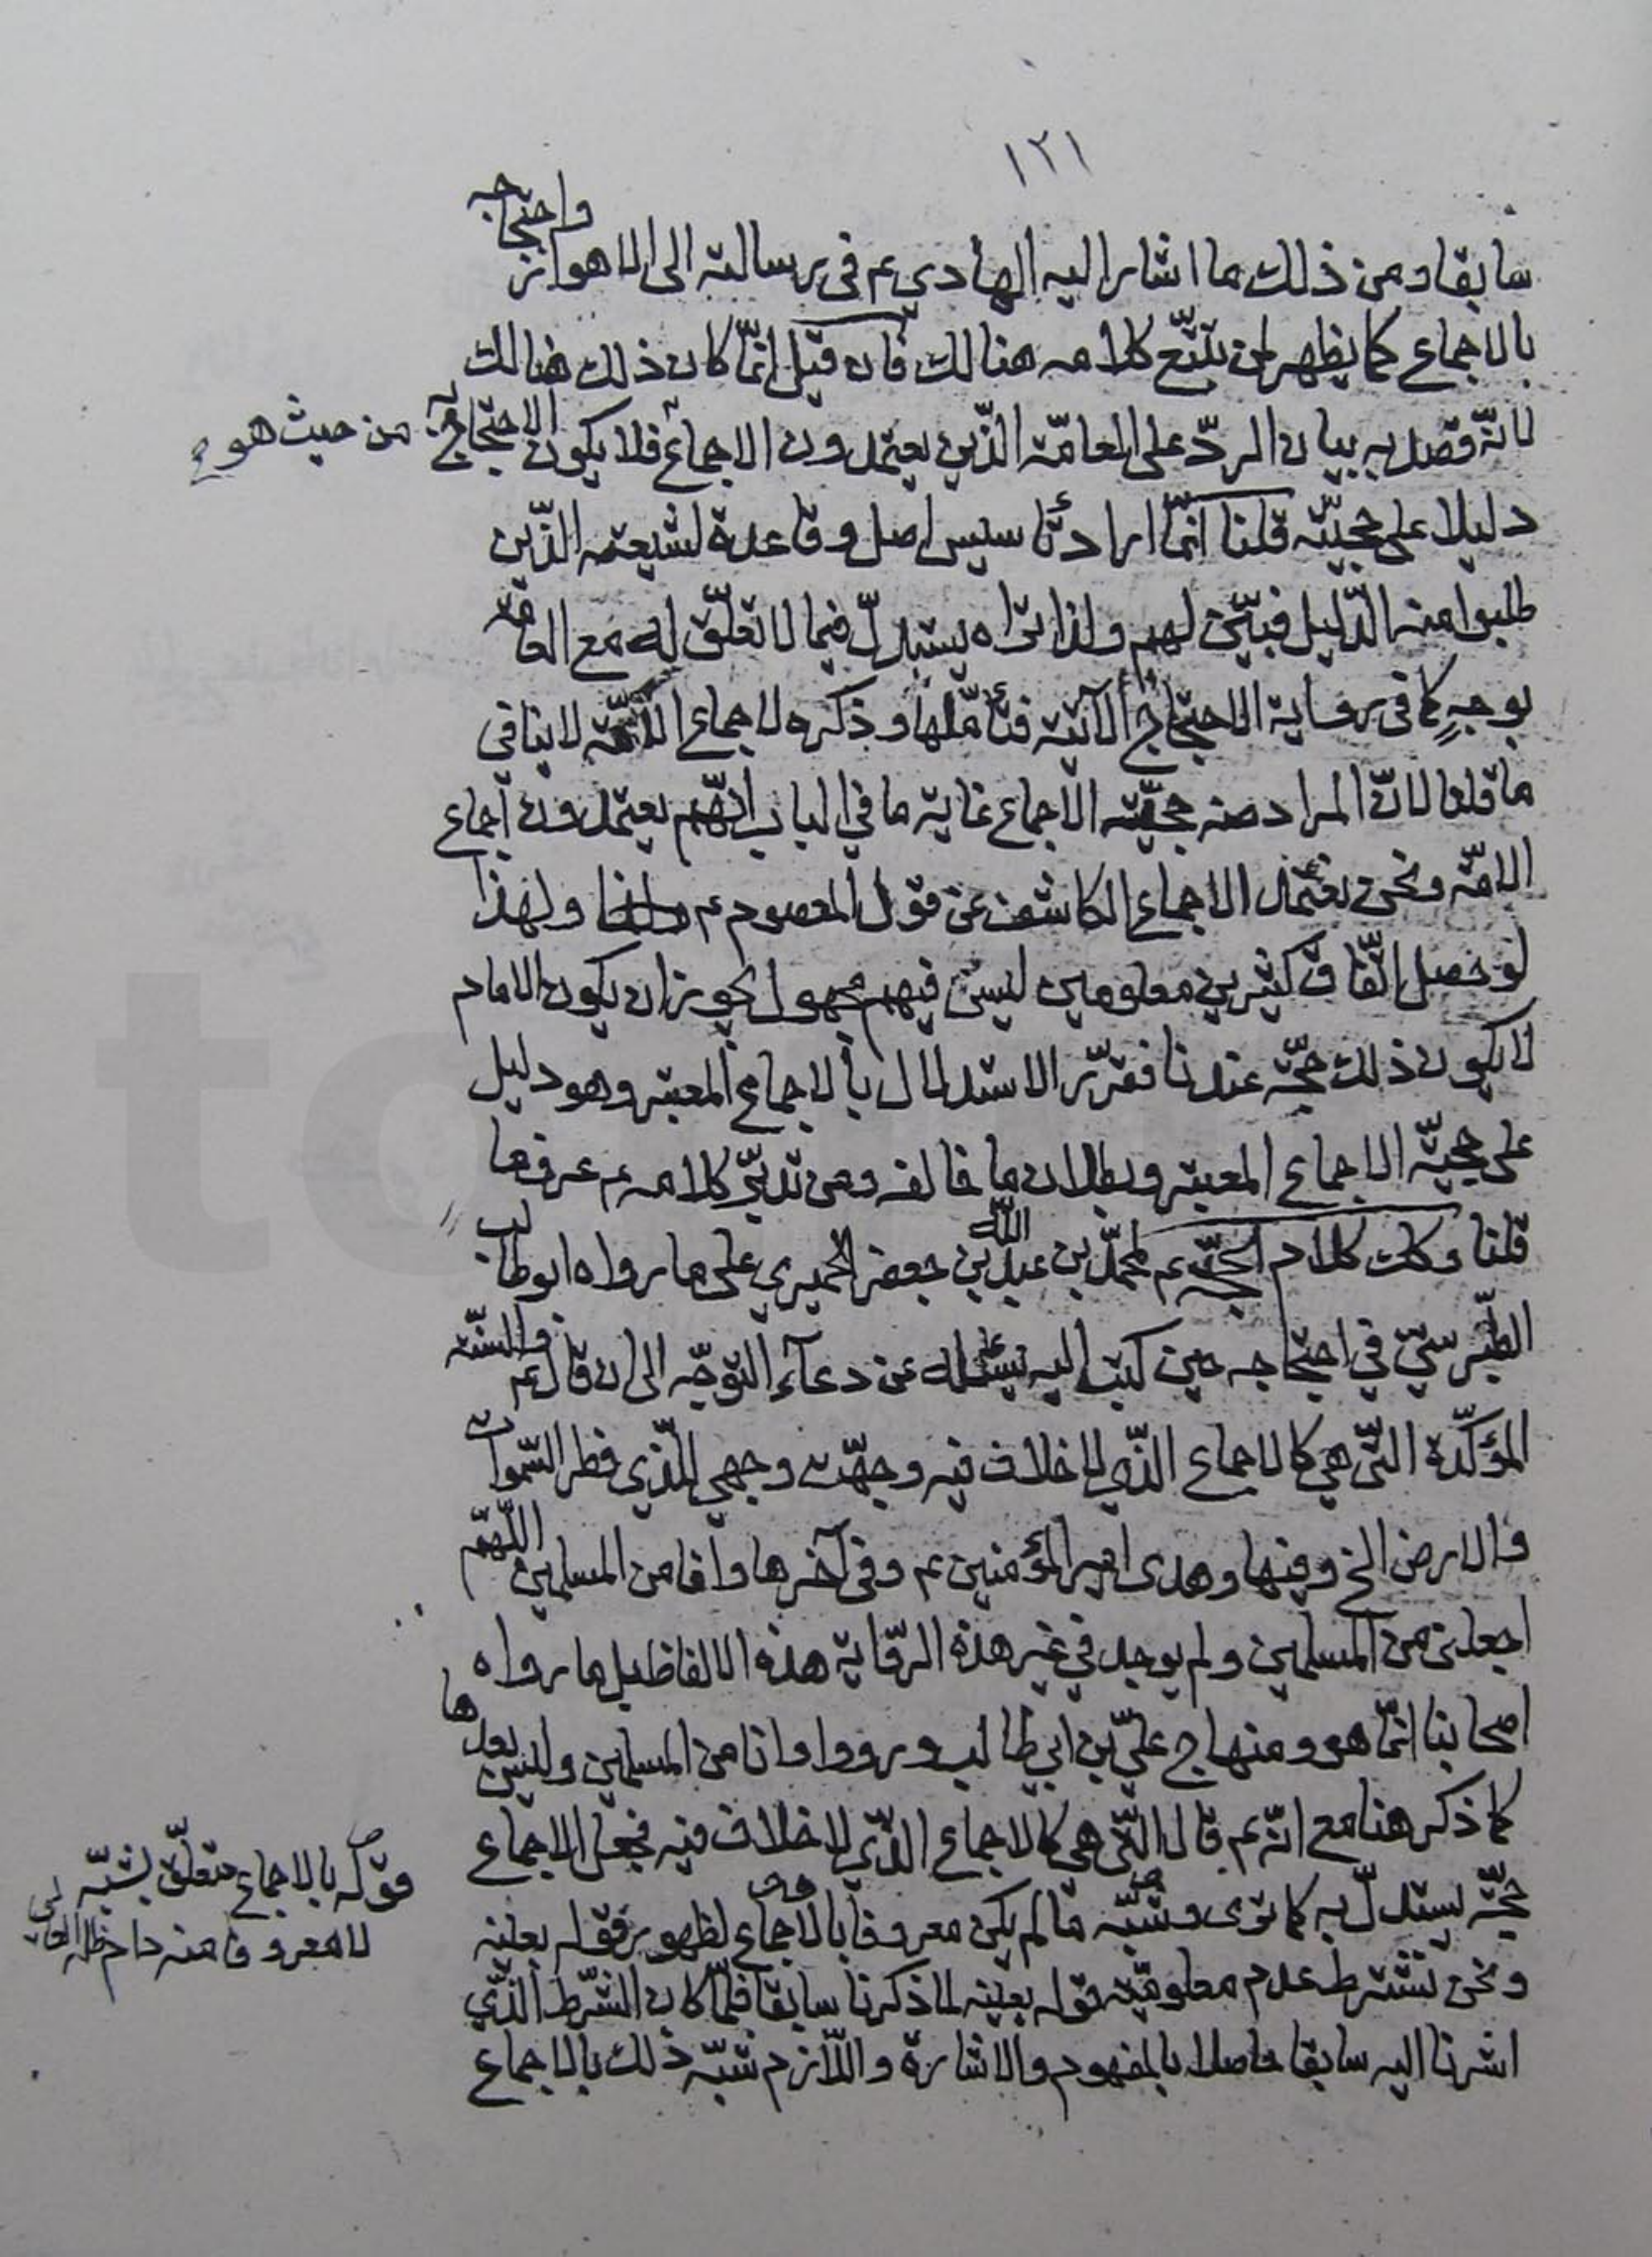 ١٢١
سابقا ومن ذلك ما اشار اليه الهادي عم في رسالته الى الاهواز واحتجاجه
بالاجماع كما يظهر لمن تتبّع كلامه هنالك فان قيل انّما كان ذلك هنالك
لانّه قصد به بيان الردّ على العامّة الذّين يعتمدون الاجماع فلا يكون الاحتجاج به من حيث هو
دليلا على حجيّته قلنا انّما اراد تأسيس اصل وقاعدة لشيعته الذّين
طلبوا منه الدّليل فبيّن لهم ولذا تراه يستدلّ فيما لا تعلّق له مع العامّة
بوجهٍ كما في رواية الاحتجاج الآتية فتأمّلها وذكره لاجماع الائمّة لا ينافي
ما قلنا لانّ المراد منه حجيّة الاجماع غاية ما في الباب انّهم يعتمدون اجماع
الامّة ونحن نعتمد الاجماع الكاشف عن قول المعصوم عم ولهذا
لو حصل اتّفاق كثيرين معلومين ليس فيهم مجهول يجوز ان يكون الامام
لا يكون ذلك حجّة عندنا فقرّر الاستدلال بالاجماع المعتبر وهو دليل
على حجيّة الاجماع المعتبر وبطلان ما خالفه ومن تدبّر كلامه عم عرف ما
قلنا وكذلك كلام الحجّة عم لمحمّد بن عبد الله بن جعفر الحميري على ما رواه ابو طالب
الطّبرسيّ في احتجاجه حين كتب اليه يسئله عن دعآء التوجّه الى ان قال عم والسنّة
المؤكّدة التّي هي كالاجماع الذّي لا خلاف فيه وجّهت وجهي للّذي فطر السّموات
والارض الخ وفيها وهدى امير المؤمنين عم وفي آخرها وانا من المسلمين اللّهمّ
اجعلني من المسلمين ولم يوجد في غير هذه الرّواية هذه الالفاظ بل ما رواه
اصحابنا انّما هو ومنهاج عليّ بن ابي طالب ورووا وانا من المسلمين وليس بعدها
كما ذكر هنا مع انّه عم قال التّي هي كالاجماع الذّي لا خلاف فيه فجعل الاجماع
حجّة يستدلّ به كما ترى وشبّه ما لم يكن معروفا بالاجماع لظهور قوله بعينه
ونحن نشترط عدم معلوميّة قوله بعينه لما ذكرنا سابقا فلمّا كان الشّرط الذّي
اشرنا اليه سابقا حاصلا بالمفهوم والاشارة واللّازم شبّه ذلك بالاجماع
قوله بالاجماع متعلّق بشبّه
لا معروفا منه دام ظلّه العالي